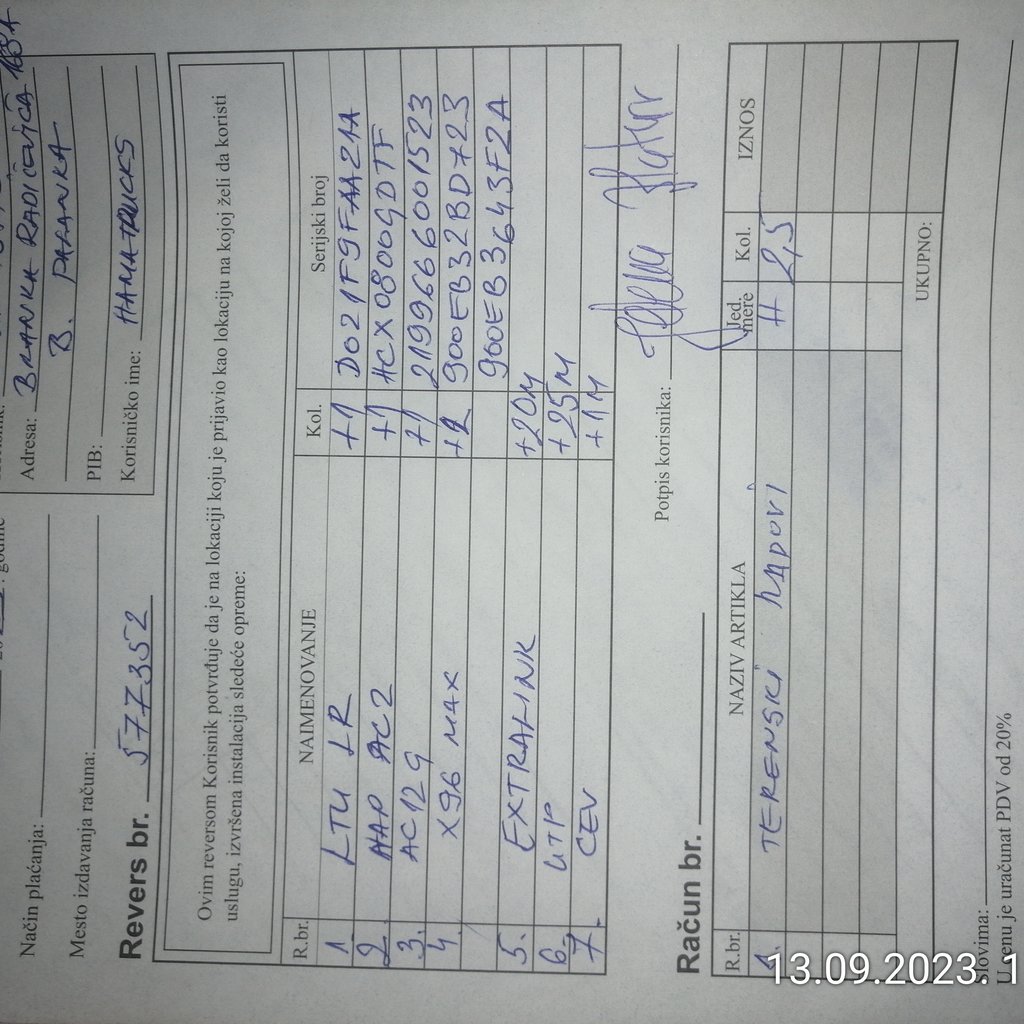 Adresa: BRANKA RADIČEVIĆA 168A
B. PALANKA
PIB:
Korisničko ime: HAMATRUCKS
Način plaćanja:
Mesto izdavanja računa:
Revers br. 577352
Ovim reversom Korisnik potvrđuje da je na lokaciji koju je prijavio kao lokaciju na kojoj želi da koristi
uslugu, izvršena instalacija sledeće opreme:
R.br. NAIMENOVANJE Kol. Serijski broj
1. LTU LR +1 D021F9FAA21A
2. HAP AC2 +1 HCX0800GDTF
3. AC12G +1 2199666001523
4. X96 MAX +2 900EB32BD723
900EB3643F2A
5. EXTRALINK +20M
6. UTP +25M
7. CEV +1M
Potpis korisnika:
Račun br.
R.br. NAZIV ARTIKLA Jed. mere Kol. IZNOS
1. TERENSKI RADOVI H 2,5
UKUPNO:
Slovima:
U cenu je uračunat PDV od 20%
13.09.2023. 1